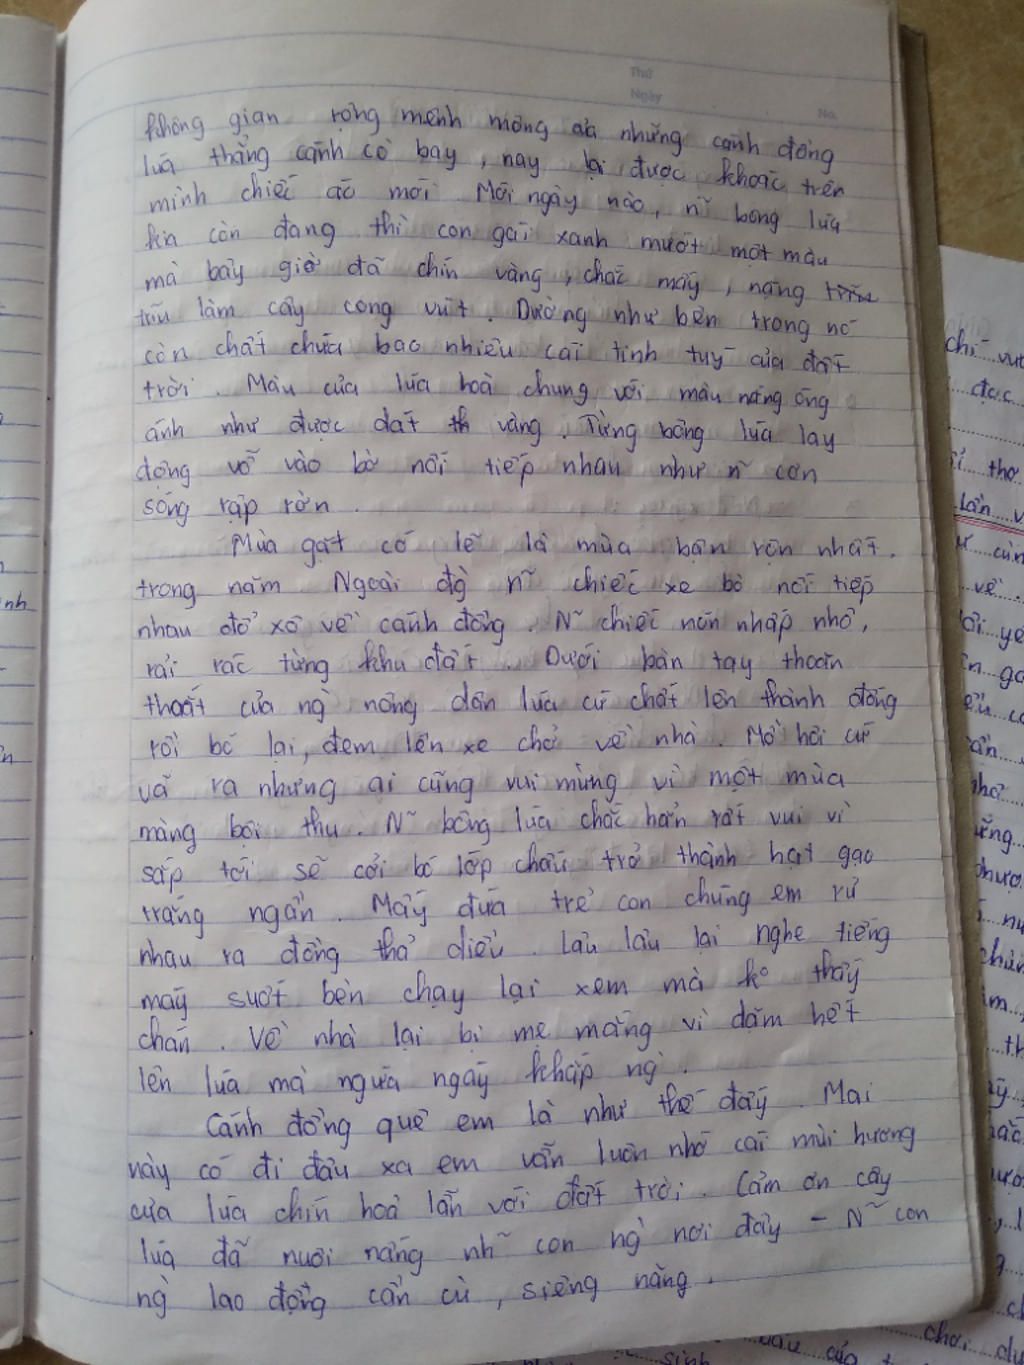 Thứ
Ngày
No.
không gian rộng mênh mông của những cánh đồng
lúa thẳng cánh cò bay, nay lại được khoác trên
mình chiếc áo mới. Mới ngày nào, n~ bông lúa
kia còn đang thì con gái xanh mướt một màu
mà bây giờ đã chín vàng, chắc mẩy, nặng
trĩu làm cây cong vút. Dường như bên trong nó
còn chất chứa bao nhiêu cái tinh tuý của đất
trời. Màu của lúa hoà chung với màu nắng óng
ánh như được dát th vàng. Từng bông lúa lay
động vỗ vào bờ nối tiếp nhau như n~ cơn
sóng rập rờn.
Mùa gặt có lẽ là mùa bận rộn nhất
trong năm Ngoài đg` n~ chiếc xe bò nối tiếp
nhau đổ xô về cánh đồng. N~ chiếc nón nhấp nhô,
rải rác từng khu đất. Dưới bàn tay thoăn
thoắt của ng` nông dân lúa cứ chất lên thành đống
rồi bó lại, đem lên xe chở về nhà. Mồ hôi cứ
vã ra nhưng ai cũng vui mừng vì một mùa
màng bội thu. N~ bông lúa chắc hẳn rất vui vì
sắp tới sẽ cởi bỏ lớp chấu trở thành hạt gạo
trắng ngần. Mấy đứa trẻ con chúng em rủ
nhau ra đồng thả diều. Lâu lâu lại nghe tiếng
máy suốt bèn chạy lại xem mà k° thấy
chán. Về nhà lại bị mẹ mắng vì dặm hết
lên lúa mà ngứa ngáy khắp ng`.
Cánh đồng quê em là như thế đấy. Mai
này có đi đâu xa em vẫn luôn nhớ cái mùi hương
của lúa chín hoà lẫn với đất trời. Cảm ơn cây
lúa đã nuôi nấng nh~ con ng` nơi đây - N~ con
ng` lao động cần cù, siêng năng.